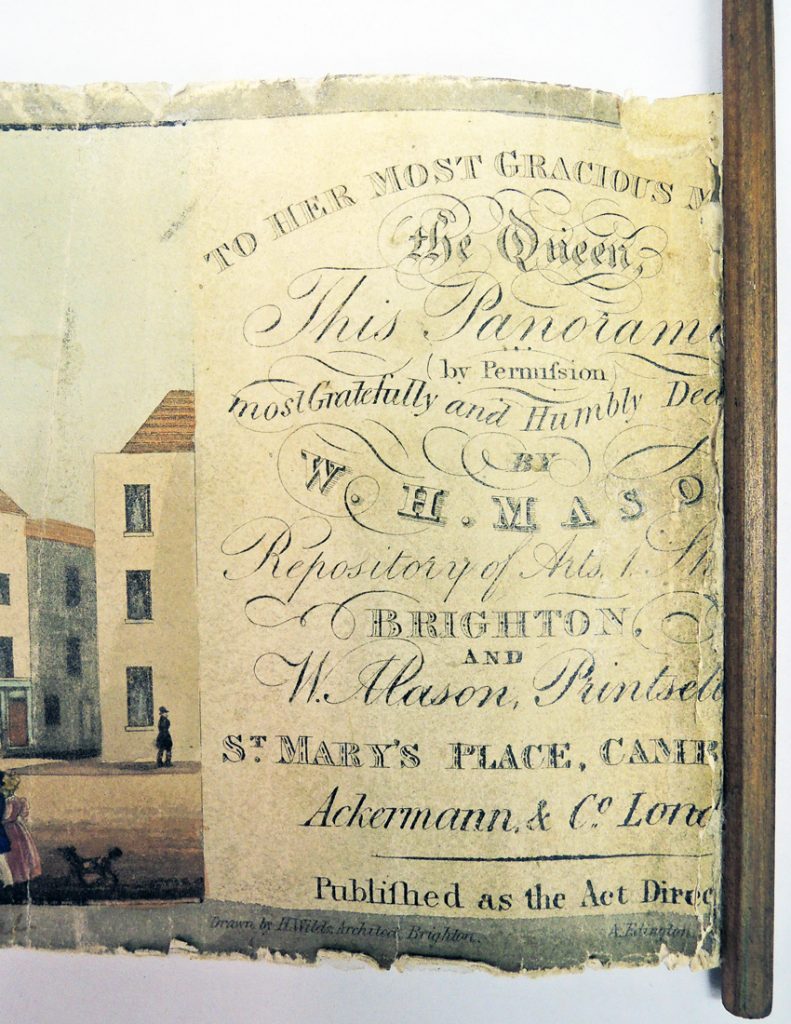 TO HER MOST GRACIOUS M
the Queen,
This Panorama
(by Permiſsion)
most Gratefully and Humbly Ded
BY
W. H. MASO
Repository of Arts, 1. Sh
BRIGHTON,
AND
W. Mason, Printsell
ST. MARY'S PLACE, CAMB
Ackermann, & Co. Lond
Publiſhed as the Act Direc
Drawn by H. Wilds, Architect, Brighton.
A. Edington